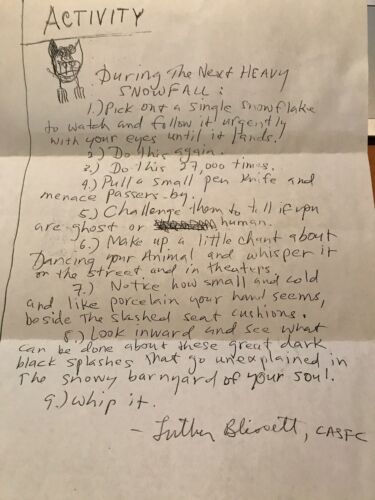 ACTIVITY
During The Next HEAVY
SNOWFALL:
1.) Pick out a single snowflake
to watch and follow it urgently
with your eyes until it lands.
2.) Do this again.
3.) Do this 27,000 times.
4.) Pull a small pen knife and
menace passers-by.
5.) Challenge them to tell if you
are ghost or human.
6.) Make up a little chant about
Dancing your Animal and whisper it
on the street and in theaters
7.) Notice how small and cold
and like porcelain your hand seems,
beside the slashed seat cushions.
8.) Look inward and see what
can be done about these great dark
black splashes that go unexplained in
The snowy barnyard of your soul.
9.) Whip it.
- Luther Blissett, CASFC